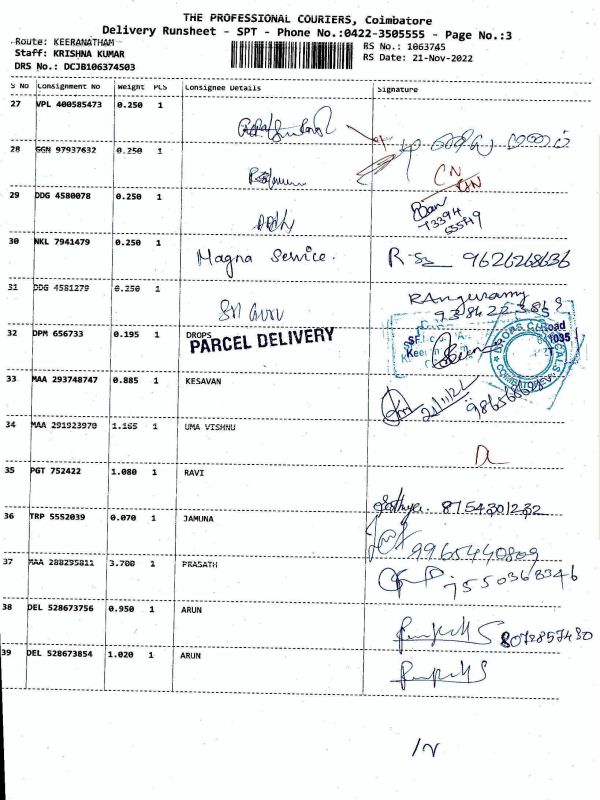 THE PROFESSIONAL COURIERS, Coimbatore
Delivery Runsheet - SPT - Phone No.:0422-3505555 - Page No.:3
Route: KEERANATHAM
Staff: KRISHNA KUMAR
DRS No.: DCJB106374503
RS No.: 1063745
RS Date: 21-Nov-2022
S No Consignment No Weight PCS Consignee Details Signature
27 VPL 400585473 0.250 1
28 GGN 97937632 0.250 1
CN
29 DDG 4580078 0.250 1
73394
30 NKL 7941479 0.250 1 Magna Service. 9626268636
31 DDG 4581279 0.250 1 Sri Guru
32 DPM 656733 0.195 1 DROPS
PARCEL DELIVERY
33 MAA 293748747 0.885 1 KESAVAN
21/11/22
34 MAA 291923970 1.165 1 UMA VISHNU
35 PGT 752422 1.080 1 RAVI
Sathya 8154301232
36 TRP 5552039 0.070 1 JAMUNA
9965440809
37 MAA 288295811 3.700 1 PRASATH
7550368346
38 DEL 528673756 0.950 1 ARUN
8072857430
39 DEL 528673854 1.020 1 ARUN